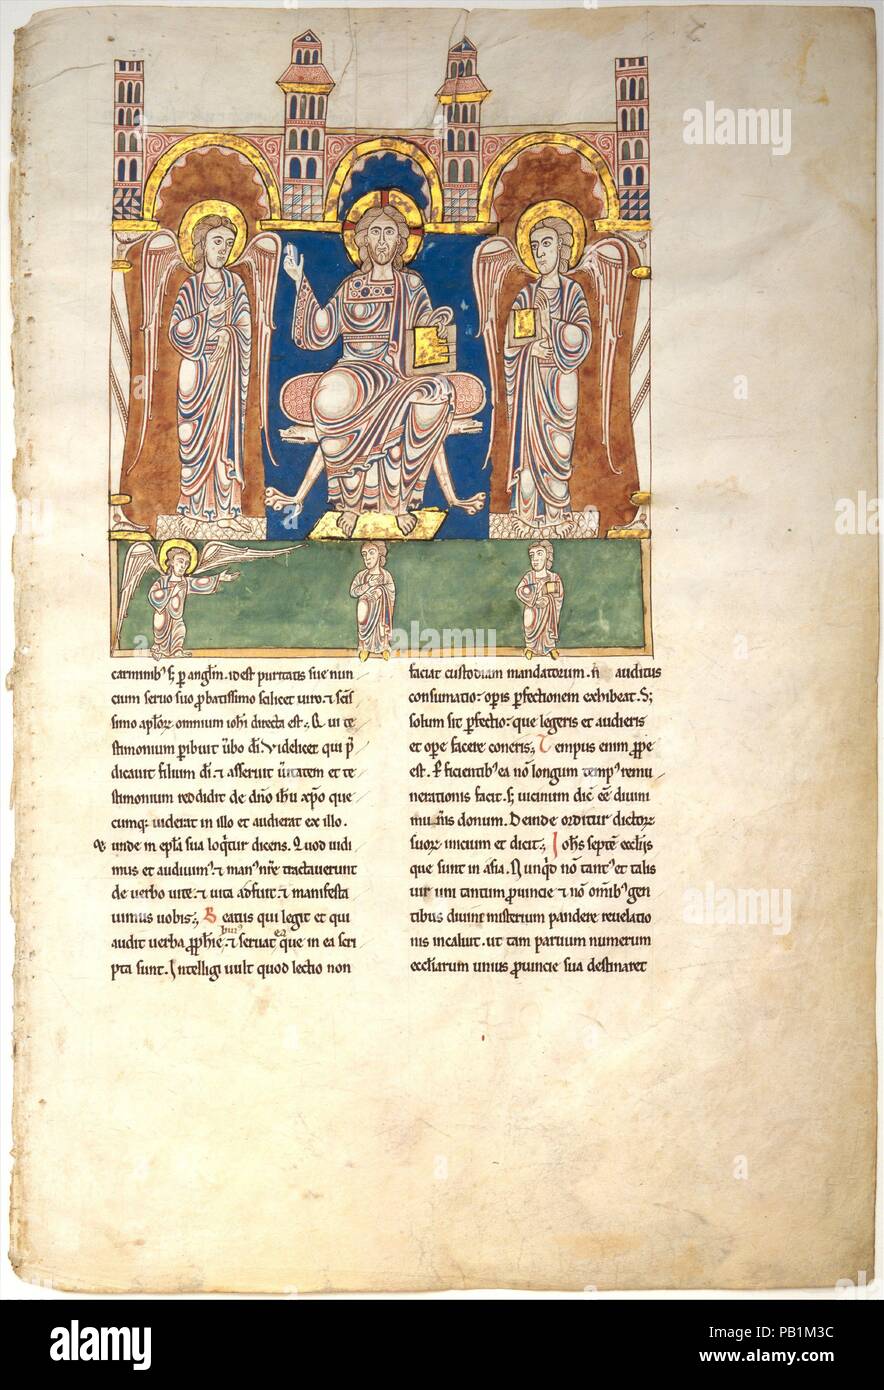 carminib' s; p anglm. id est puritatis sue nun
cium seruo suo probatissimo scilicet uiro. ⁊ scis
simo aplor omnium iohi directa est; Qui te
stimonium pibuit ubo di. Videlicet qui p
dicauit filium di. ⁊ asseruit uitatem et te
stimonium reddidit de dno ihu xpo que
cumq: uiderat in illo et audierat ex illo.
unde in epla sua loqtur dicens. Quod uidi
mus et audiuim'. ⁊ man' nre tractauerunt
de uerbo uite. ⁊ uita adfuit. ⁊ manifesta
uimus uobis; Beatus qui legit et qui
audit uerba pphie. ⁊ seruat que in ea scri
pta sunt. Intelligi uult quod lectio non
faciat custodiam mandatorum. n auditus
consumatio: opis pfectionem exhibeat. S;
solum sit pfectio: que legeris et audieris
et ope facere coneris; Tempus enim ppe
est. Pficientib' ea no longum temp' remu
nerationis facit. s; uicinum die ee diuini
mu nis donum. Deinde orditur dictore
suor inicium et dicit; Iohs septe ecclijs
que sunt in asia. Nunqd no tant' et talis
uir uni tantum puincie ⁊ no omib' gen
tibus diuini misterium pandere reuelatio
nis incaluit. ut tam paruum numerum
eccliarum unius puincie sua destinaret
alamy
alamy
alamy
alamy
a
a
alamy
Image ID: PB1M3C
www.alamy.com